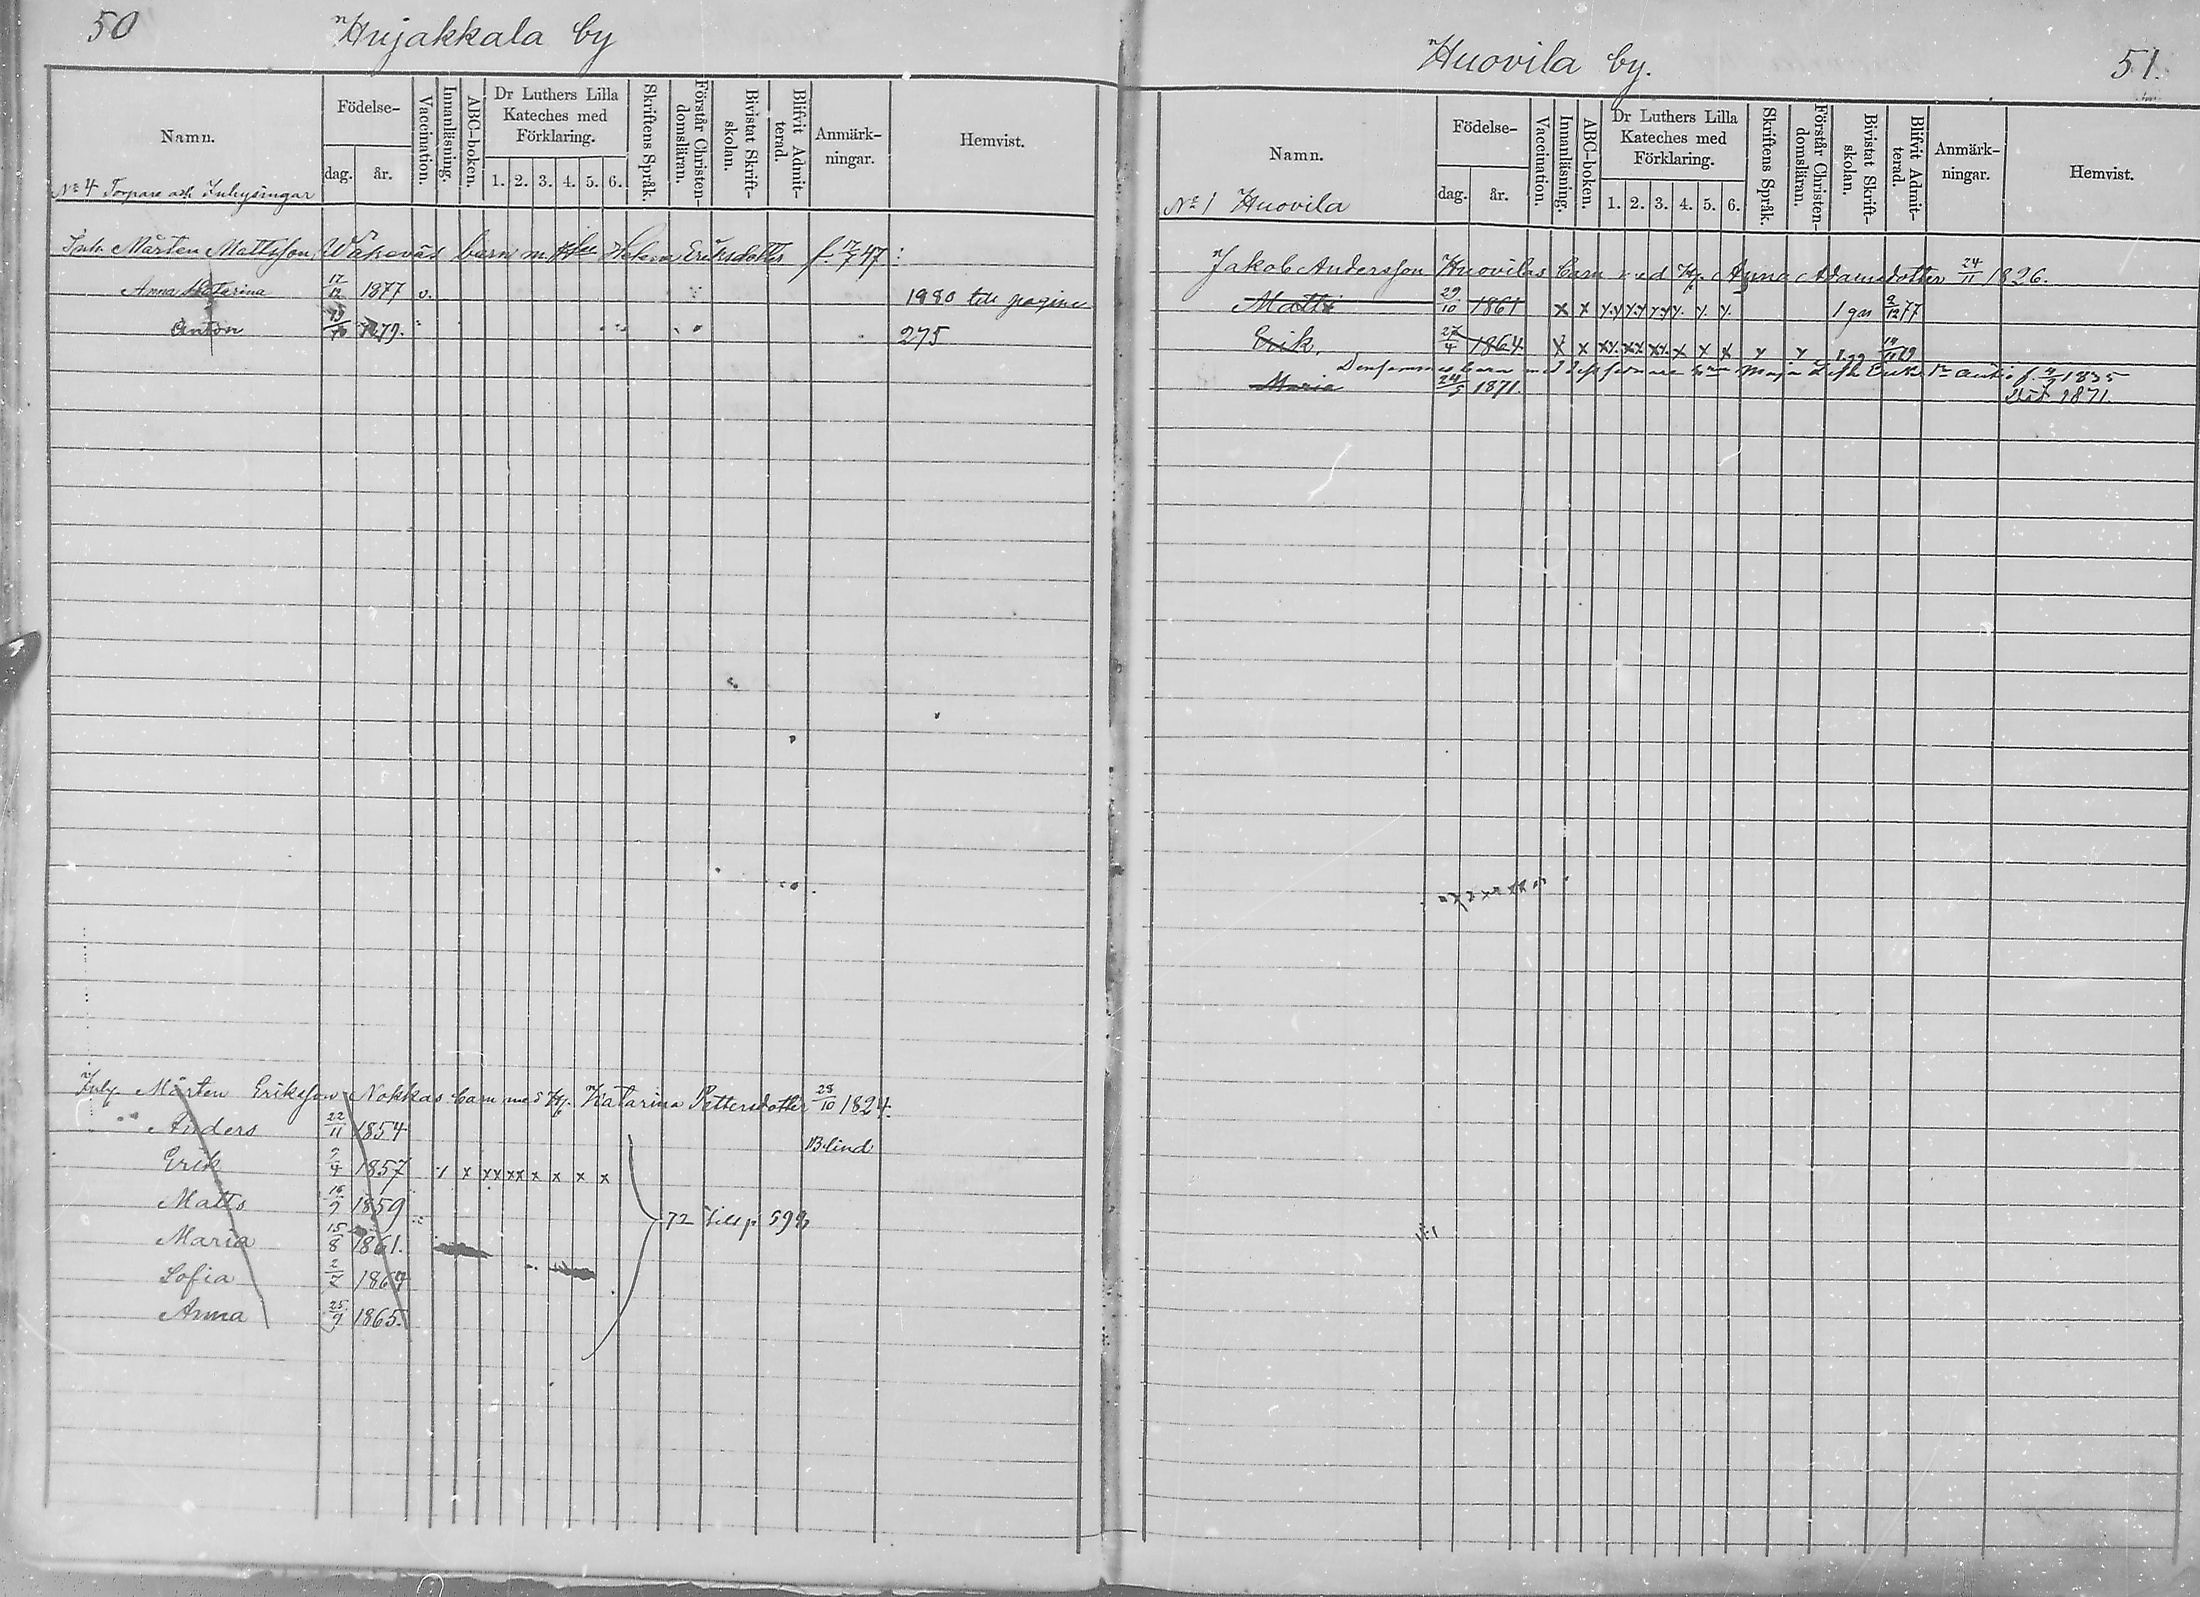 50
Hujakkala by
Namn.
Födelse-
dag.
år.
Vaccination.
Innanläsning.
ABC-boken.
Dr Luthers Lilla
Kateches med
Förklaring.
1. 2. 3. 4. 5. 6.
Skriftens Språk.
Förstår Christen-
domsläran.
Bivistat Skrift-
skolan.
Blifvit Admit-
terad.
Anmärk-
ningar.
Hemvist.
No 4 Torpare och Inhysingar
Inh. Mårten Mattsson barn m. Helena Eriksdotter f. 47
Anna Katarina 17/12 1877 v. 1980 pagina
Anton 1879. 275
Inh. Mårten Eriksson Nokkas barn med H. Katarina Pettersdotter 28/10 1824.
Anders 22/11 1854 Blind
Erik 1857 x x xx xx x x x x
Matts 16/9 1859 72 till p 598
Maria 15/8 1861.
Sofia
Anna 25/9 1865.
Huovila by.
51.
Namn.
Födelse-
dag.
år.
Vaccination.
Innanläsning.
ABC-boken.
Dr Luthers Lilla
Kateches med
Förklaring.
1. 2. 3. 4. 5. 6.
Skriftens Språk.
Förstår Christen-
domsläran.
Bivistat Skrift-
skolan.
Blifvit Admit-
terad.
Anmärk-
ningar.
Hemvist.
No 1 Huovila
Jakob Andersson Huovilas barn med H. Anna Adamsdotter 24/11 1826.
Matts 29/10 1861 x x 1 g 9/12 77
Erik. 27/4 1864. x x xx. xx. xx. x x x
Densammes barn med Maja Eriks f. 1835
Maria 24/5 1871. Död 1871.